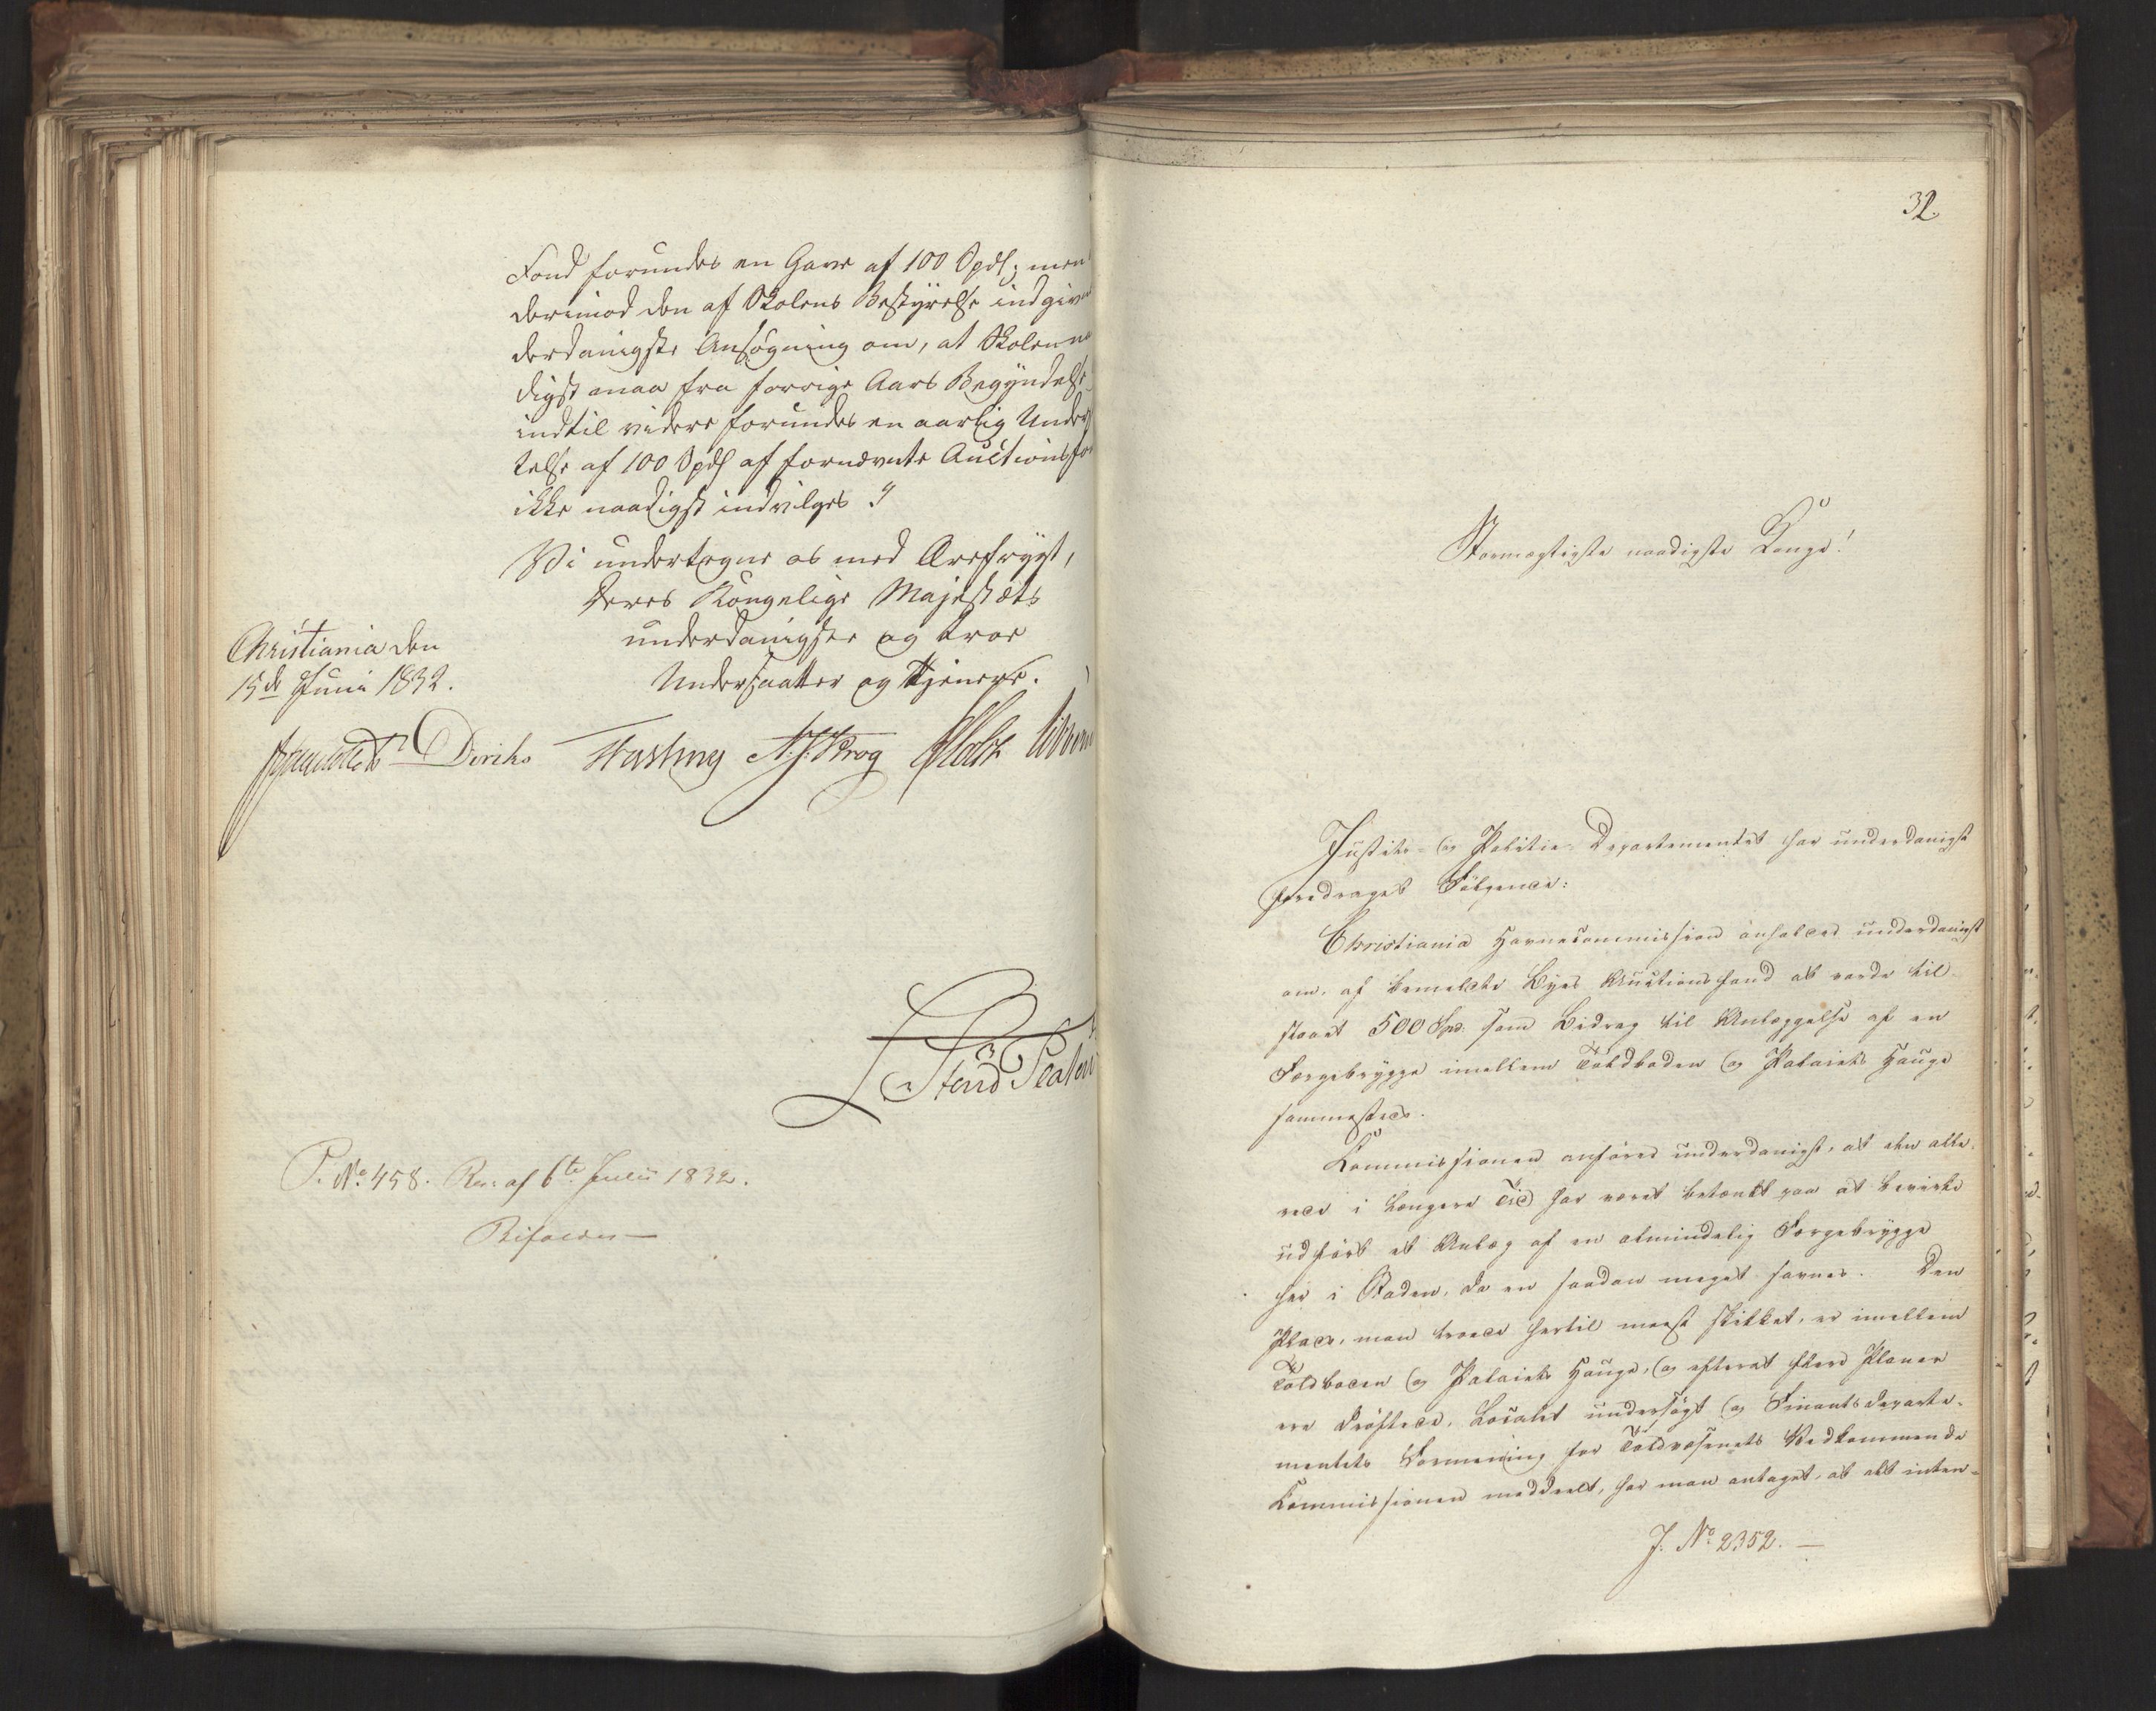 Fond forundes en Gave af 100 Spdl; men
derimod den af Skolens Bestyrelse indgivn
derdanigste Ansøgning om, at Skolen na
digst maa fra forrige Aars Begyndelse
indtil videre forundes en aarlig Unders
telse af 100 Spdl af fornævnte Auctionsfo
ikke naadigst indvilges?
Vi undertegne os med Ærefrygt,
Deres Kongelige Majestæts
underdanigste og troe
Undersaatter og Tjenere.
Christiania den
15de Juni 1832.
Diriks Fasting N. J. Krog Holst Vibe
P. No. 458. Res: af 6te Julii 1832.
Bifaldes
32.
Stormægtigste naadigste Konge!
Justits- og Politie-Departementet har underdanigst
foredraget Følgende:
Christiania Havnecommission anholder underdanigst
om, af bemeldte Byes Auctionsfond at vorde til-
staaet 500 Spd: som Bidrag til Anlæggelse af en
Færgebrygge imellem Toldboden og Palaiets Hauge
sammesteds.
Kommissionen anfører underdanigst, at den alle-
rede i længere Tid har været betænkt paa at bevirke
udført et Anlæg af en almindelig Færgebrygge
her i Staden, da en saadan meget savnes. Den
Plads, man troede hertil meest skikket, er imellem
Toldboden og Palaiets Hauge, og efterat flere Planer
ere drøftede, Localet undersøgt og Finantsdeparte-
mentets Formening for Toldvæsenets Vedkommende
Kommissionen meddeelt, har man antaget, at det inten-
J. No 2352.